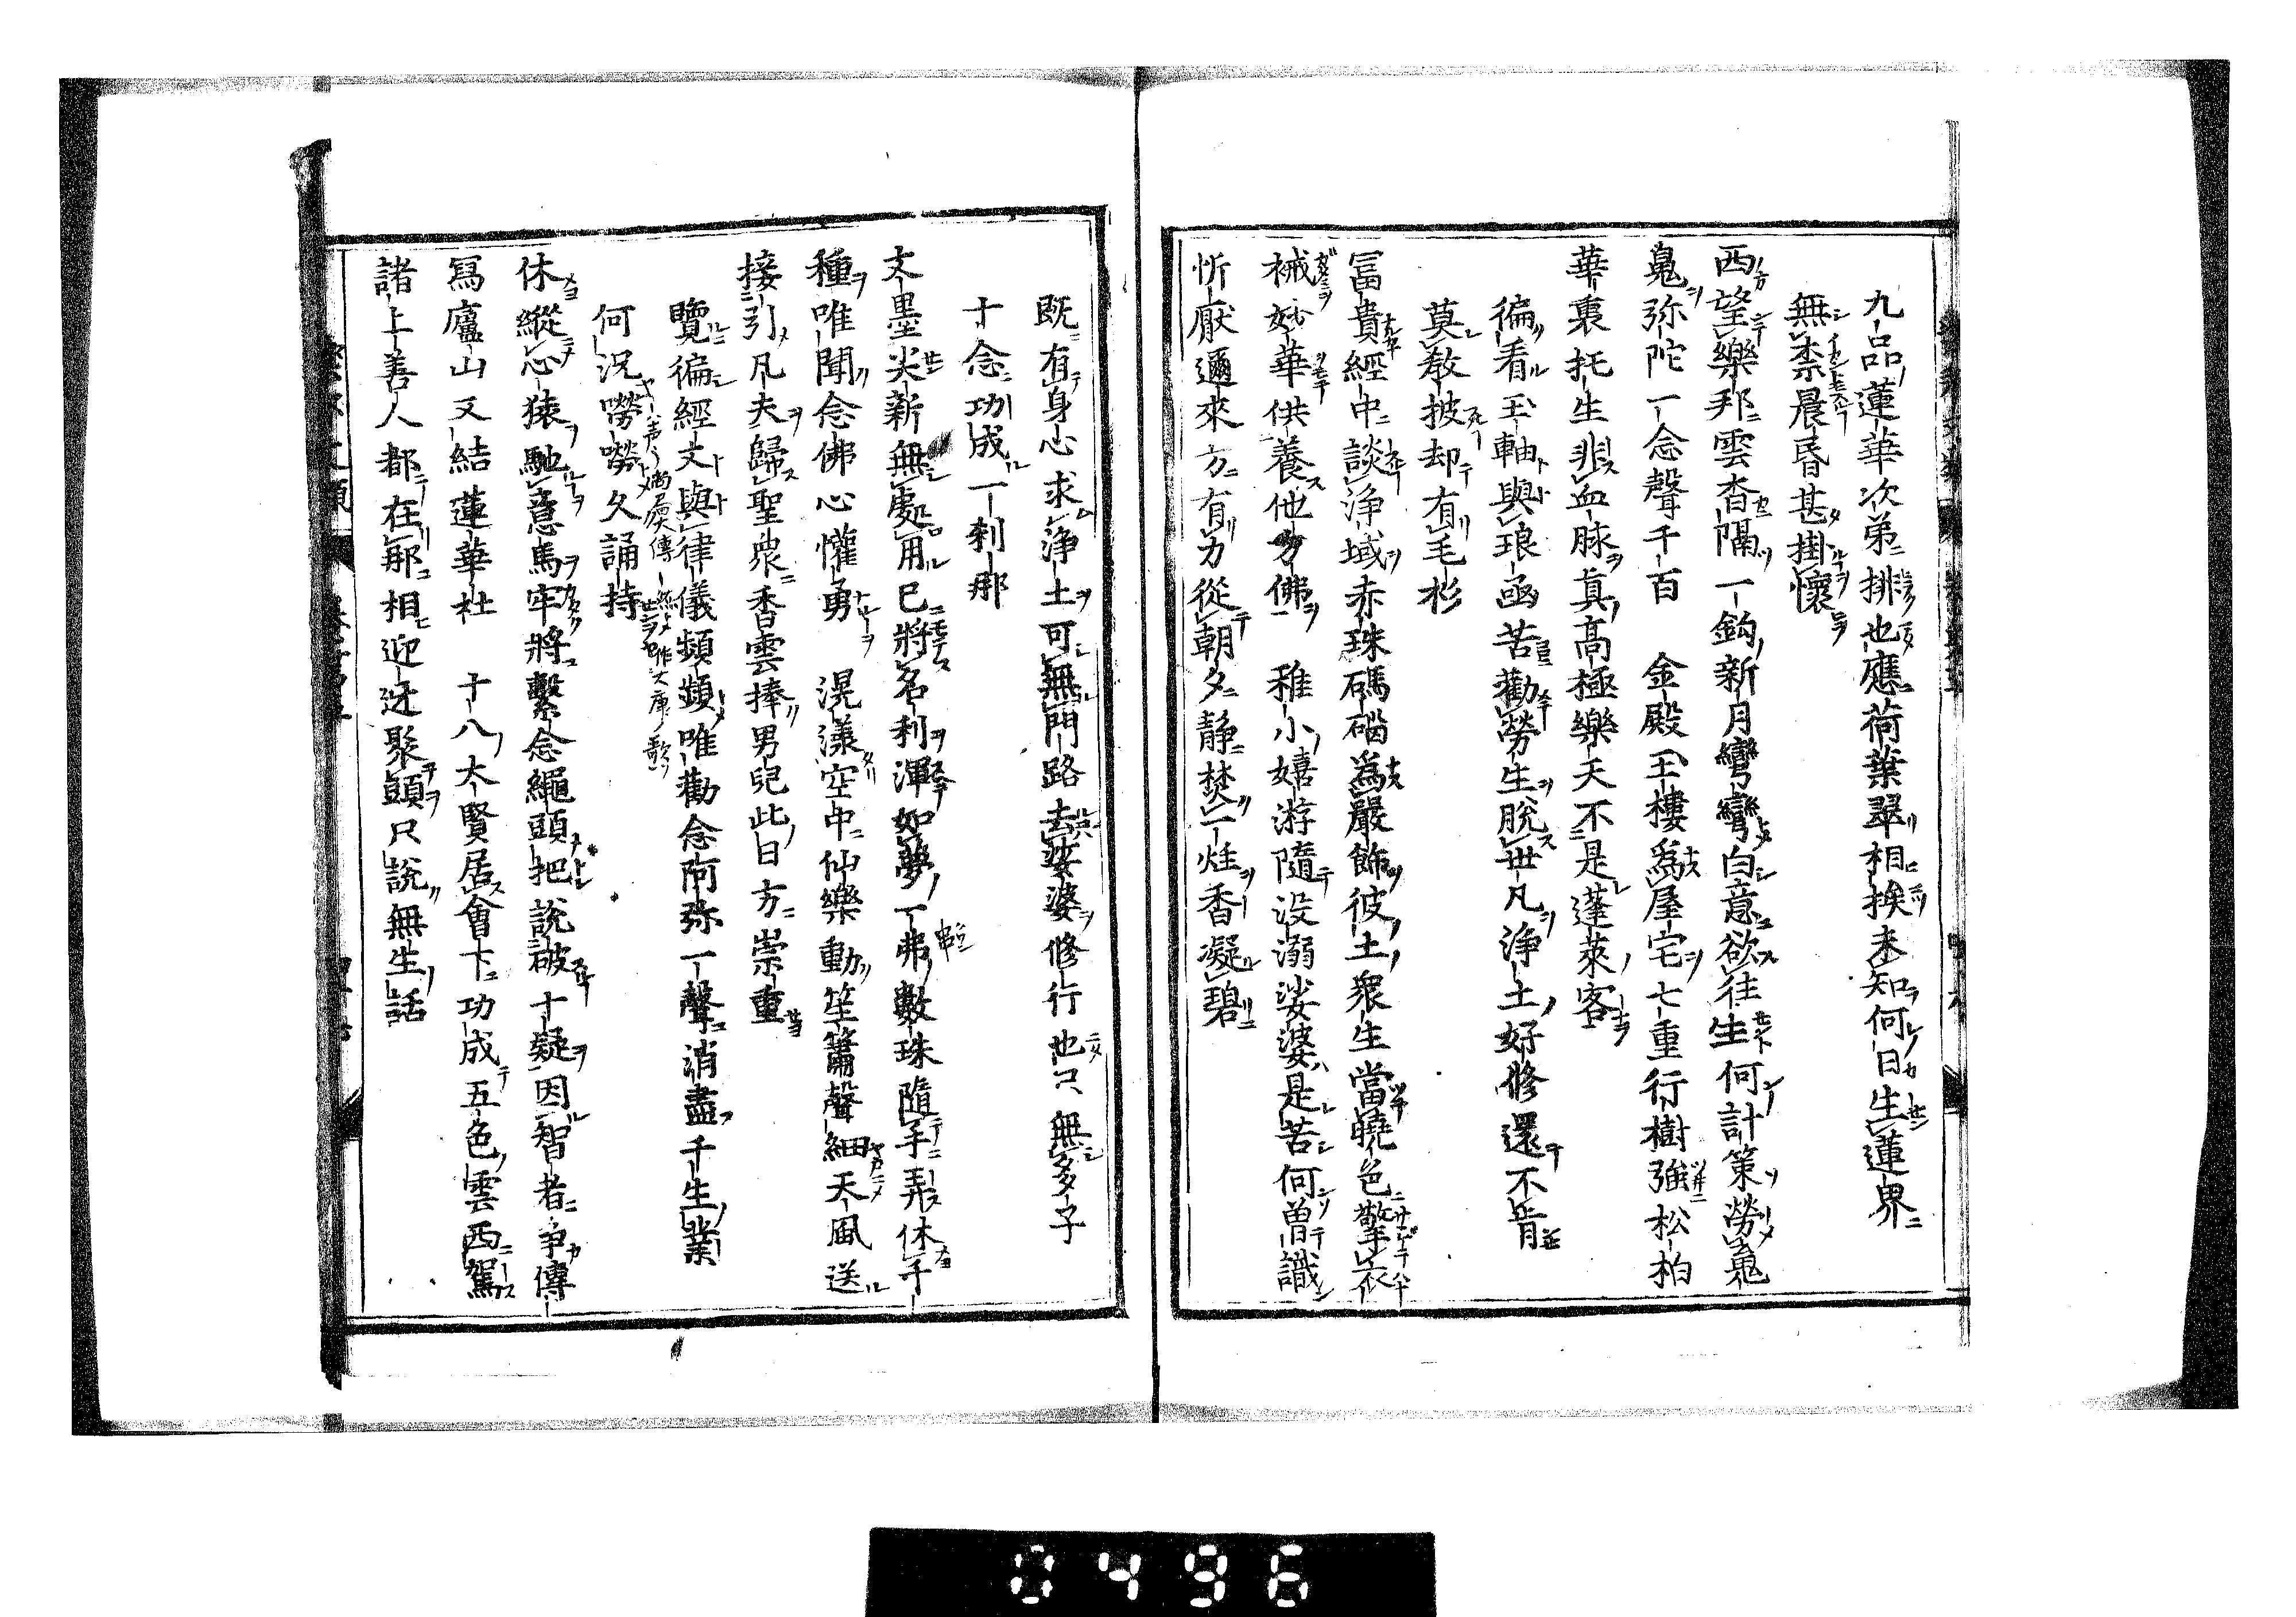 九品蓮華次第排也應荷葉翠相挨未知何日生蓮界
無柰晨昏甚掛懷
西望樂邦雲杳隔一鈎新月彎彎白意欲往生何計策勞䰟
䰟弥陀一念聲千百　金殿玉樓為屋宅七重行樹強松柏
華裏托生非血脉真高極樂天不是蓬萊客
徧看玉軸與琅函苦勸勞生脫世凡淨土好修還不肯
莫教披却有毛衫
冨貴經中談淨域赤珠碼碯為嚴飾彼土眾生當曉色擎衣
裓妙華供養他方佛　稚小嬉游隨没溺娑婆是苦何曽識
忻厭邇來方有力從朝夕静焚一炷香凝碧
既有身心求淨土可無門路去娑婆修行也只無多子
十念功成一刹那
文墨尖新無處用已將名利渾如夢一串數珠隨手弄休千
種唯聞念佛心懽勇　滉漾空中仙樂動笙簫聲細天風送
接引凡夫歸聖衆香雲捧男兒此日方崇重
覽徧經文與律儀頻頻唯勸念阿弥一聲消盡千生業
何況嘮嘮久誦持
休縱心猿馳意馬牢將繫念繩頭把説破十疑因智者争傳
寫廬山又結蓮華社　十八大賢居會下功成五色雲西駕
諸上善人都在那相迎迓聚頭只説無生話
0496